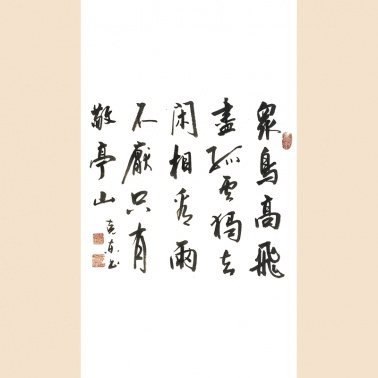 眾鳥高飛
盡孤雲獨去
閑相看兩
不厭只有
敬亭山